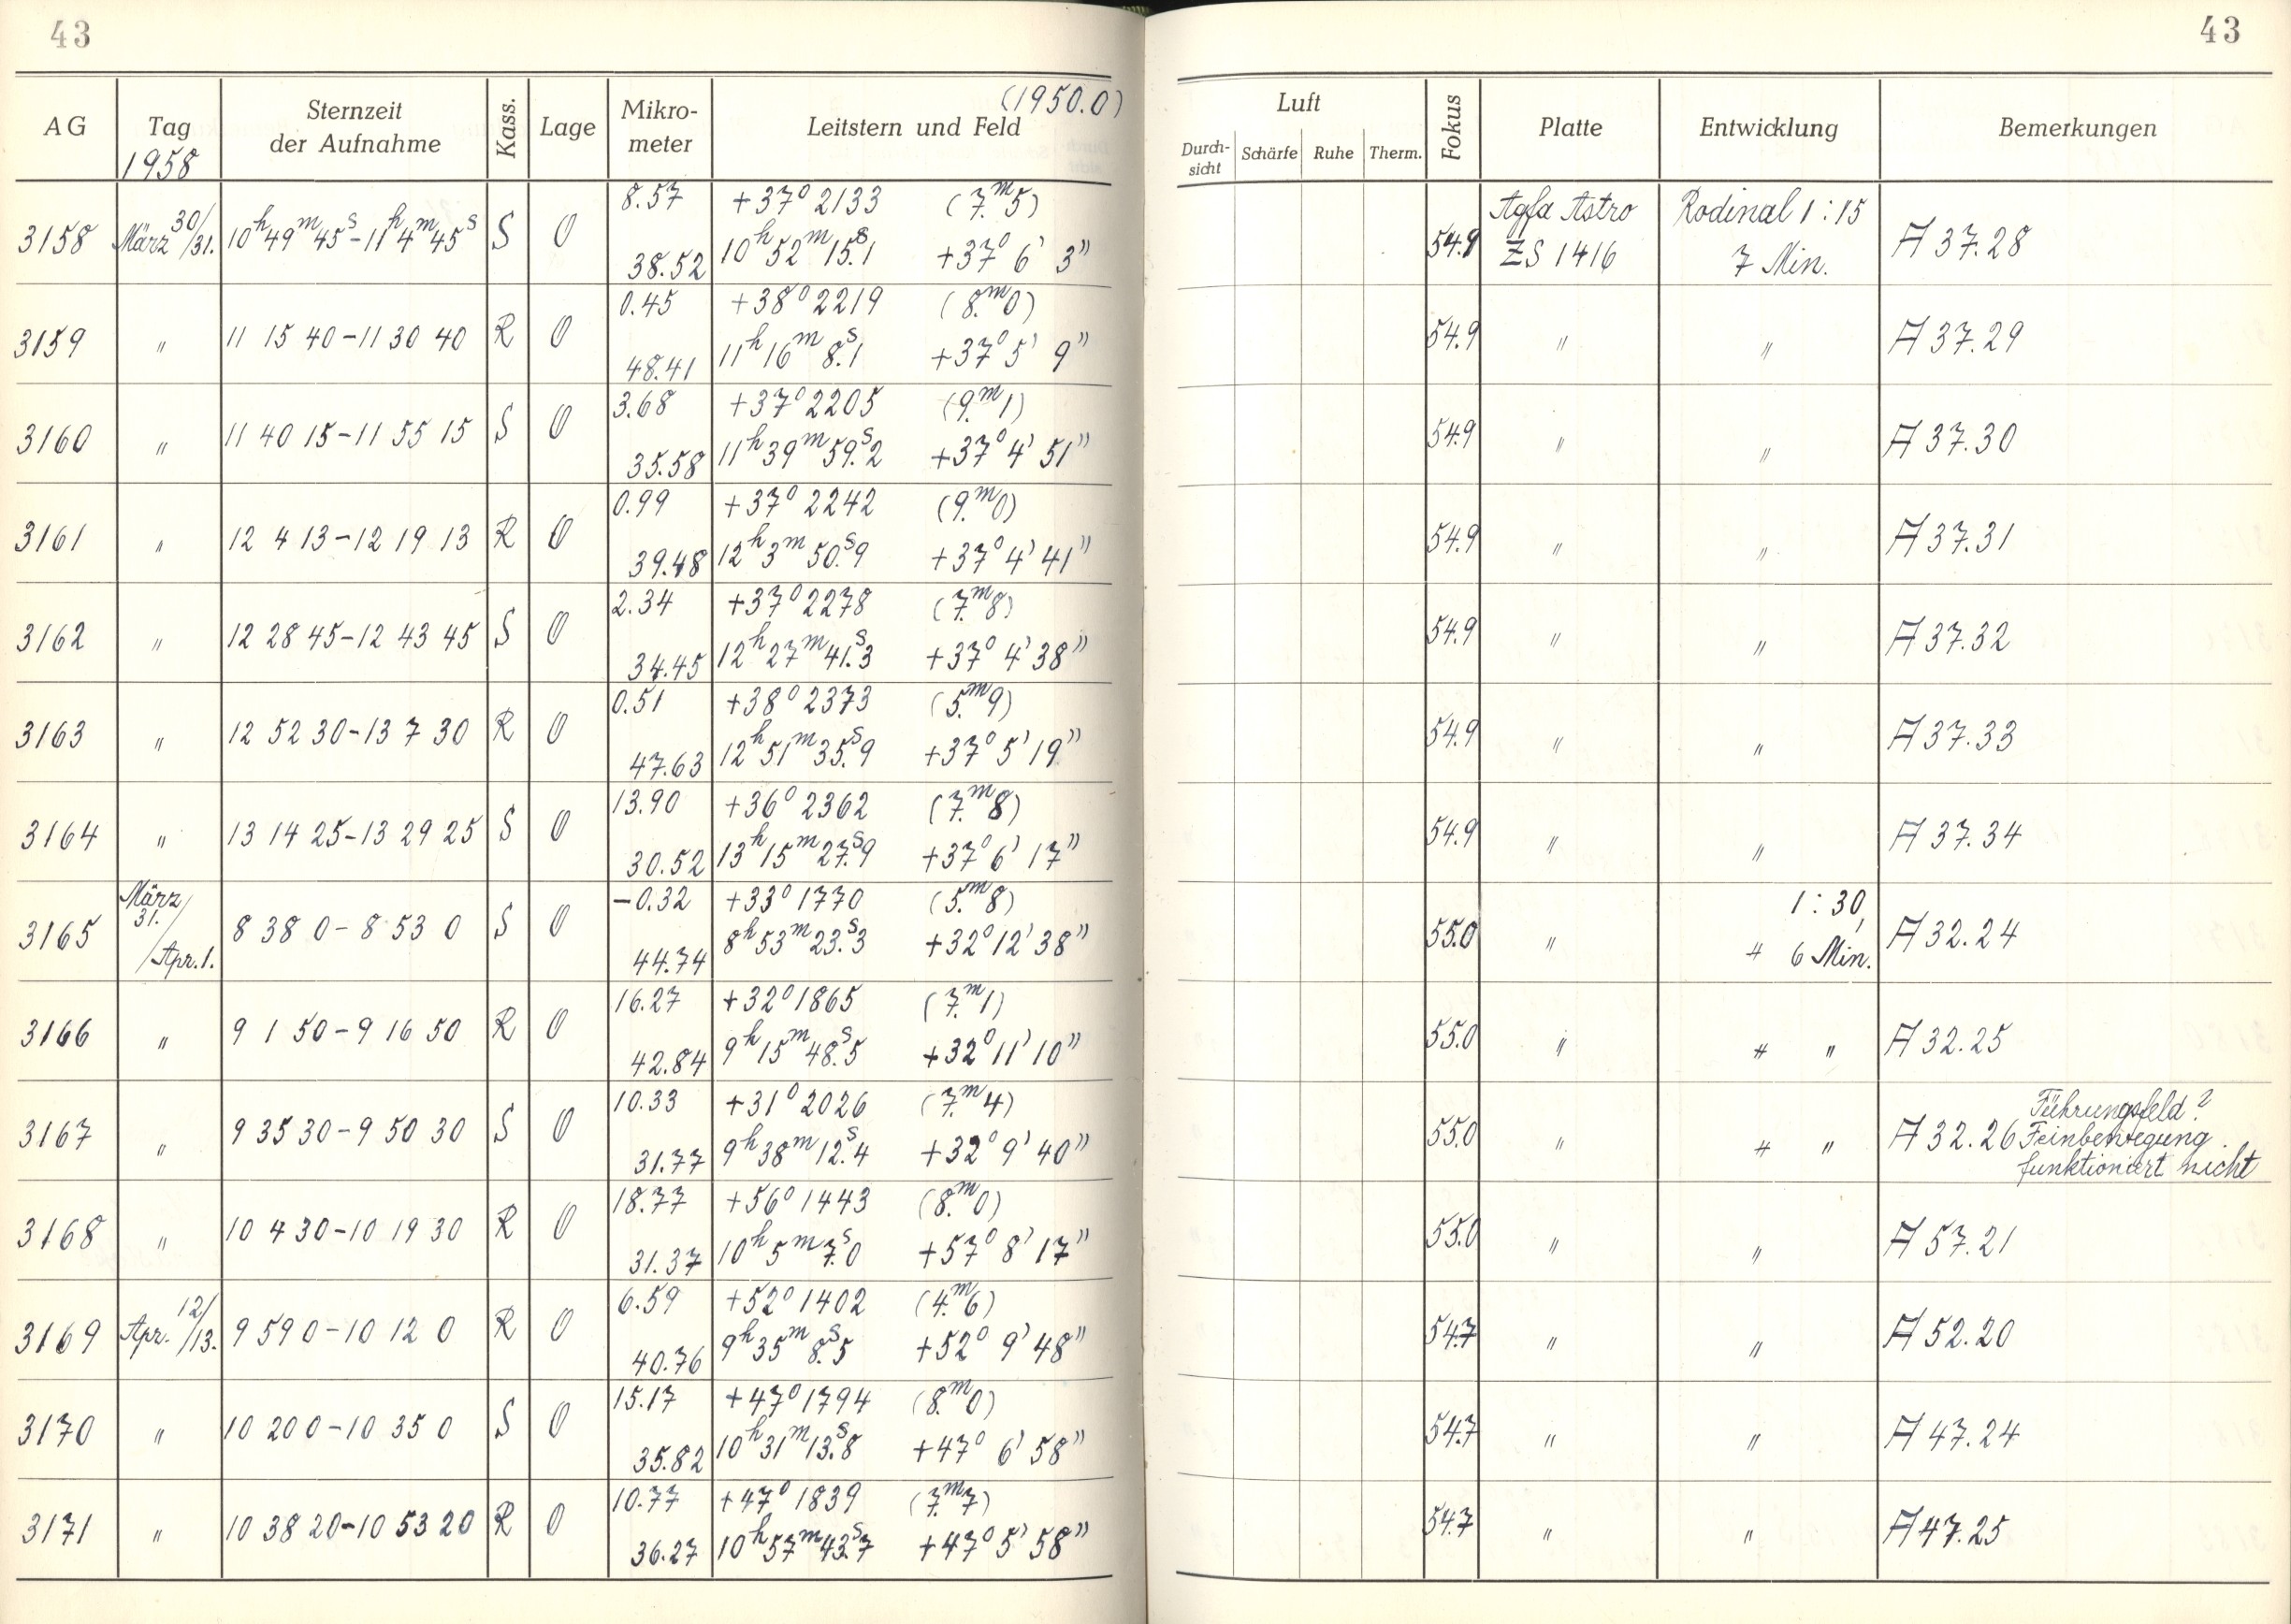 43
43
(1950.0)
AG Tag Sternzeit der Aufnahme Kass. Lage Mikro-meter Leitstern und Feld Luft Durch-sicht Schärfe Ruhe Therm. Fokus Platte Entwicklung Bemerkungen
1958
8.57 +37° 2133 (7.ᵐ5) Agfa Astro Rodinal 1:15
3158 März 30/31. 10ʰ49ᵐ45ˢ-11ʰ4ᵐ45ˢ S O 54.9 A 37.28
38.52 10ʰ52ᵐ15.ˢ1 +37° 6' 3" ZS 1416 7 Min.
0.45 +38° 2219 (8.ᵐ0)
3159 " 11 15 40-11 30 40 R O 54.9 " " A 37.29
48.41 11ʰ16ᵐ8.ˢ1 +37° 5' 9"
3.68 +37° 2205 (9.ᵐ1)
3160 " 11 40 15-11 55 15 S O 54.9 " " A 37.30
35.58 11ʰ39ᵐ59.ˢ2 +37° 4' 51"
0.99 +37° 2242 (9.ᵐ0)
3161 " 12 4 13-12 19 13 R O 54.9 " " A 37.31
39.48 12ʰ3ᵐ50.ˢ9 +37° 4' 41"
2.34 +37° 2278 (7.ᵐ8)
3162 " 12 28 45-12 43 45 S O 54.9 " " A 37.32
34.45 12ʰ27ᵐ41.ˢ3 +37° 4' 38"
0.51 +38° 2373 (5.ᵐ9)
3163 " 12 52 30-13 7 30 R O 54.9 " " A 37.33
47.63 12ʰ51ᵐ35.ˢ9 +37° 5' 19"
13.90 +36° 2362 (7.ᵐ8)
3164 " 13 14 25-13 29 25 S O 54.9 " " A 37.34
30.52 13ʰ15ᵐ27.ˢ9 +37° 6' 17"
März 31./ -0.32 +33° 1770 (5.ᵐ8) 1:30,
3165 8 38 0-8 53 0 S O 55.0 " A 32.24
/Apr.1. 44.74 8ʰ53ᵐ23.ˢ3 +32° 12' 38" " 6 Min.
16.27 +32° 1865 (7.ᵐ1)
3166 " 9 1 50-9 16 50 R O 55.0 " " " A 32.25
42.84 9ʰ15ᵐ48.ˢ5 +32° 11' 10"
10.33 +31° 2026 (7.ᵐ4) Führungsfeld?
3167 " 9 35 30-9 50 30 S O 55.0 " " " A 32.26 Feinbewegung
31.77 9ʰ38ᵐ12.ˢ4 +32° 9' 40" funktioniert nicht
18.77 +56° 1443 (8.ᵐ0)
3168 " 10 4 30-10 19 30 R O 55.0 " " A 57.21
31.37 10ʰ5ᵐ7.ˢ0 +57° 8' 17"
6.59 +52° 1402 (4.ᵐ6)
3169 Apr. 12/13. 9 59 0-10 12 0 R O 54.7 " " A 52.20
40.76 9ʰ35ᵐ8.ˢ5 +52° 9' 48"
15.17 +47° 1794 (8.ᵐ0)
3170 " 10 20 0-10 35 0 S O 54.7 " " A 47.24
35.82 10ʰ31ᵐ13.ˢ8 +47° 6' 58"
10.77 +47° 1839 (7.ᵐ7)
3171 " 10 38 20-10 53 20 R O 54.7 " " A 47.25
36.27 10ʰ57ᵐ43.ˢ7 +47° 5' 58"